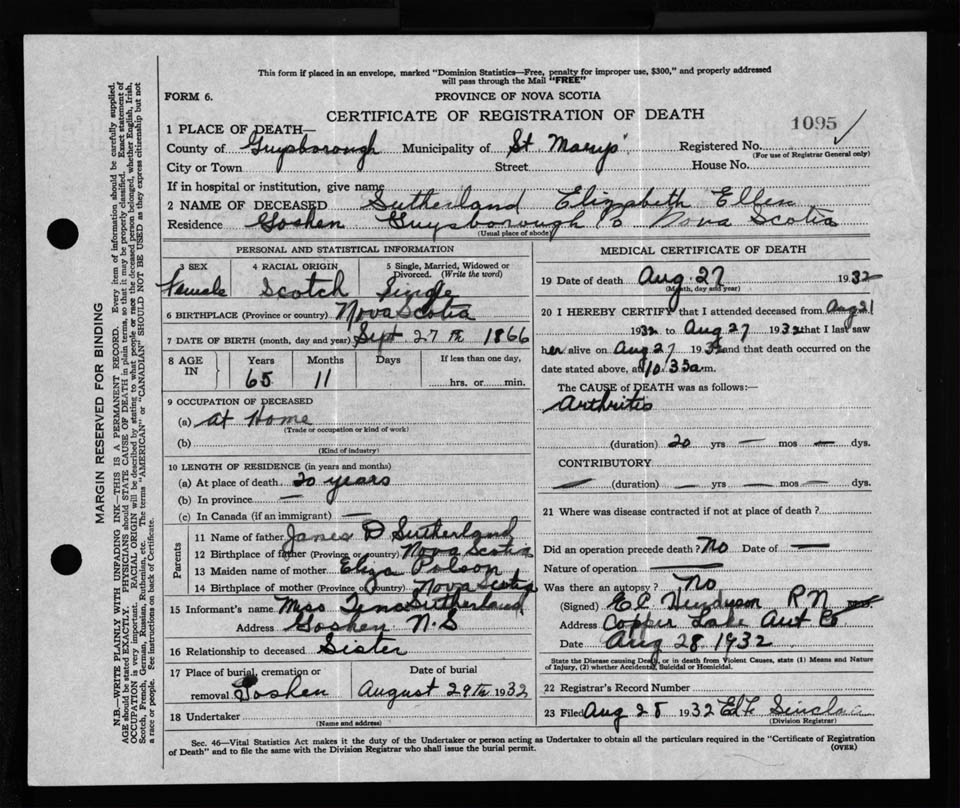 This form if placed in an envelope, marked "Dominion Statistics—Free, penalty for improper use, $300," and properly addressed
will pass through the Mail "FREE"
FORM 6.
PROVINCE OF NOVA SCOTIA
CERTIFICATE OF REGISTRATION OF DEATH
1095
1 PLACE OF DEATH—
County of Guysborough Municipality of St Marys' Registered No.
(For use of Registrar General only)
City or Town Street House No.
If in hospital or institution, give name
2 NAME OF DECEASED Sutherland Elizabeth Ellen
Residence Goshen Guysborough Co Nova Scotia
(Usual place of abode)
PERSONAL AND STATISTICAL INFORMATION
3 SEX 4 RACIAL ORIGIN 5 Single, Married, Widowed or
Divorced. (Write the word)
Female Scotch Single
6 BIRTHPLACE (Province or country) Nova Scotia
7 DATE OF BIRTH (month, day and year) Sept 27th 1866
8 AGE IN Years Months Days If less than one day,
65 11 hrs. or min.
9 OCCUPATION OF DECEASED
(a) at Home
(Trade or occupation or kind of work)
(b)
(Kind of industry)
10 LENGTH OF RESIDENCE (in years and months)
(a) At place of death 20 years
(b) In province —
(c) In Canada (if an immigrant) —
Parents
11 Name of father James D Sutherland
12 Birthplace of father (Province or country) Nova Scotia
13 Maiden name of mother Eliza Polson
14 Birthplace of mother (Province or country) Nova Scotia
15 Informant's name Miss Tena Sutherland
Address Goshen N.S
16 Relationship to deceased Sister
17 Place of burial, cremation or Date of burial
removal Goshen August 29th 1932
18 Undertaker
(Name and address)
MEDICAL CERTIFICATE OF DEATH
19 Date of death Aug 27 1932
(Month, day and year)
20 I HEREBY CERTIFY that I attended deceased from Aug 21
1932 to Aug 27 1932 that I last saw
her alive on Aug 27 1932 and that death occurred on the
date stated above, at 10.35 a m.
The CAUSE of DEATH was as follows:—
Arthritis
(duration) 20 yrs — mos — dys.
CONTRIBUTORY
— (duration) — yrs — mos — dys.
21 Where was disease contracted if not at place of death?
Did an operation precede death? No Date of —
Nature of operation —
Was there an autopsy? No
(Signed) E C R N
Address Copper Lake Ant Co
Date Aug 28 1932
State the Disease causing Death, or in death from Violent Causes, state (1) Means and Nature
of Injury, (2) whether Accidental, Suicidal or Homicidal.
22 Registrar's Record Number
23 Filed Aug 28 1932 Sinclair
(Division Registrar)
Sec. 46—Vital Statistics Act makes it the duty of the Undertaker or person acting as Undertaker to obtain all the particulars required in the "Certificate of Registration
of Death" and to file the same with the Division Registrar who shall issue the burial permit.
(OVER)
MARGIN RESERVED FOR BINDING
N.B.—WRITE PLAINLY WITH UNFADING INK—THIS IS A PERMANENT RECORD. Every item of information should be carefully supplied.
AGE should be stated EXACTLY. PHYSICIANS should STATE CAUSE OF DEATH in plain terms, so that it may be properly classified. Exact statement of
OCCUPATION is very important. RACIAL ORIGIN will be described by stating to what people or race the deceased person belonged, whether English, Irish,
Scotch, French, German, Russian, Ruthenian, etc. The terms "AMERICAN" or "CANADIAN" SHOULD NOT BE USED as they express citizenship but not
a race or people. See instructions on back of Certificate.